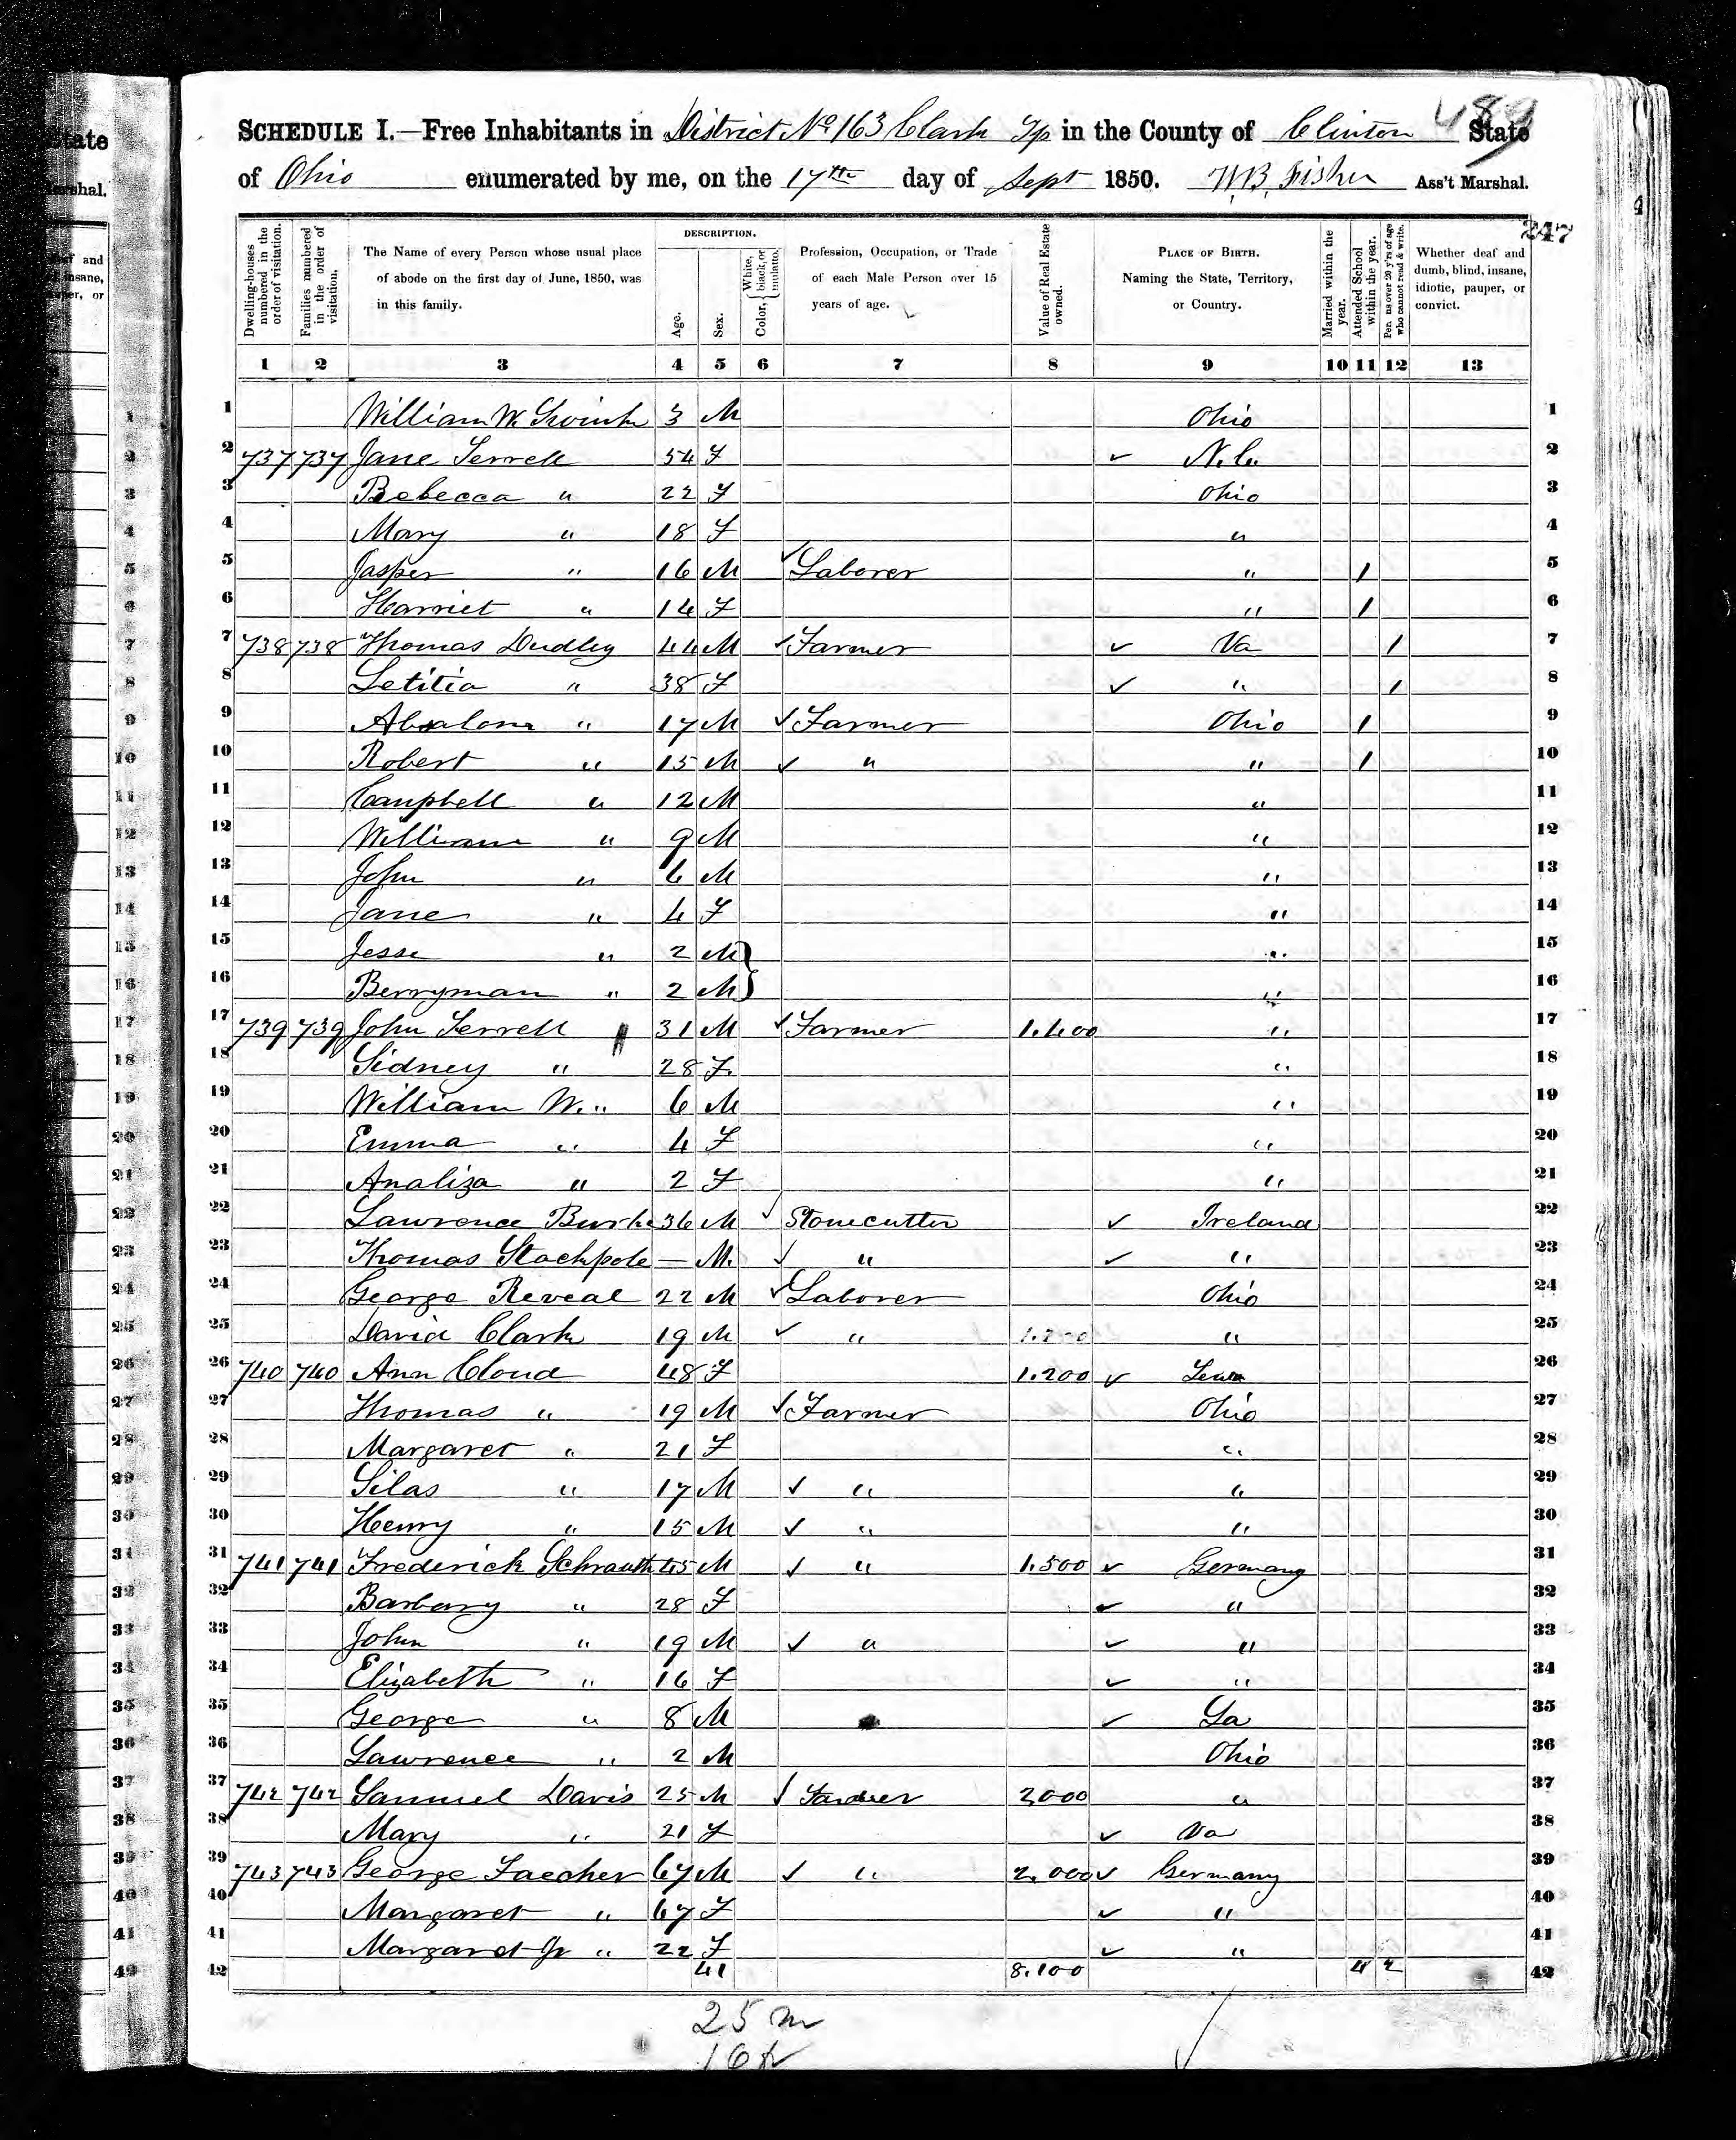 489
SCHEDULE I.—Free Inhabitants in District No 163 Clark Tp in the County of Clinton State
of Ohio enumerated by me, on the 17th day of Sept 1850. W.B. Fisher Ass't Marshal.
247
Dwelling-houses numbered in the order of visitation.
Families numbered in the order of visitation.
The Name of every Person whose usual place of abode on the first day of June, 1850, was in this family.
DESCRIPTION.
Age.
Sex.
Color, { White, black, or mulatto.
Profession, Occupation, or Trade of each Male Person over 15 years of age.
Value of Real Estate owned.
PLACE OF BIRTH. Naming the State, Territory, or Country.
Married within the year.
Attended School within the year.
Per. ns over 20 y'rs of age who cannot read & write.
Whether deaf and dumb, blind, insane, idiotic, pauper, or convict.
1 2 3 4 5 6 7 8 9 10 11 12 13
1 William W. 3 M Ohio 1
2 737 737 Jane Terrell 54 F ✓ N.C. 2
3 Rebecca " 22 F Ohio 3
4 Mary " 18 F " 4
5 Jasper " 16 M ✓ Laborer " 1 5
6 Harriet " 14 F " 1 6
7 738 738 Thomas Dudley 44 M ✓ Farmer ✓ Va 1 7
8 Letitia " 38 F ✓ " 1 8
9 Absalom " 17 M ✓ Farmer Ohio 1 9
10 Robert " 15 M ✓ " " 1 10
11 Campbell " 12 M " 11
12 William " 9 M " 12
13 John " 6 M " 13
14 Jane " 4 F " 14
15 Jesse " 2 M } " 15
16 Berryman " 2 M } " 16
17 739 739 John Terrell 31 M ✓ Farmer 1.400 " 17
18 Sidney " 28 F. " 18
19 William W. " 6 M " 19
20 Emma " 4 F " 20
21 Analiza " 2 F " 21
22 Lawrence Burke 36 M ✓ Stonecutter ✓ Ireland 22
23 Thomas Stackpole — M. ✓ " ✓ " 23
24 George Reveal 22 M ✓ Laborer Ohio 24
25 David Clark 19 M ✓ " 1.200 " 25
26 740 740 Ann Cloud 48 F 1.200 ✓ 26
27 Thomas " 19 M ✓ Farmer Ohio 27
28 Margaret " 21 F " 28
29 Silas " 17 M ✓ " " 29
30 Henry " 15 M ✓ " " 30
31 741 741 Frederick Schrauth 45 M ✓ " 1.500 ✓ Germany 31
32 Barbary " 28 F ✓ " 32
33 John " 19 M ✓ " ✓ " 33
34 Elizabeth " 16 F ✓ " 34
35 George " 8 M ✓ 35
36 Lawrence " 2 M Ohio 36
37 742 742 Samuel Davis 25 M ✓ Farmer 2,000 " 37
38 Mary " 21 F ✓ Va 38
39 743 743 George Faecher 67 M ✓ " 2.000 ✓ Germany 39
40 Margaret " 67 F ✓ " 40
41 Margaret Jr " 22 F ✓ " 41
42 41 8.100 4 2 42
25 m
16 f